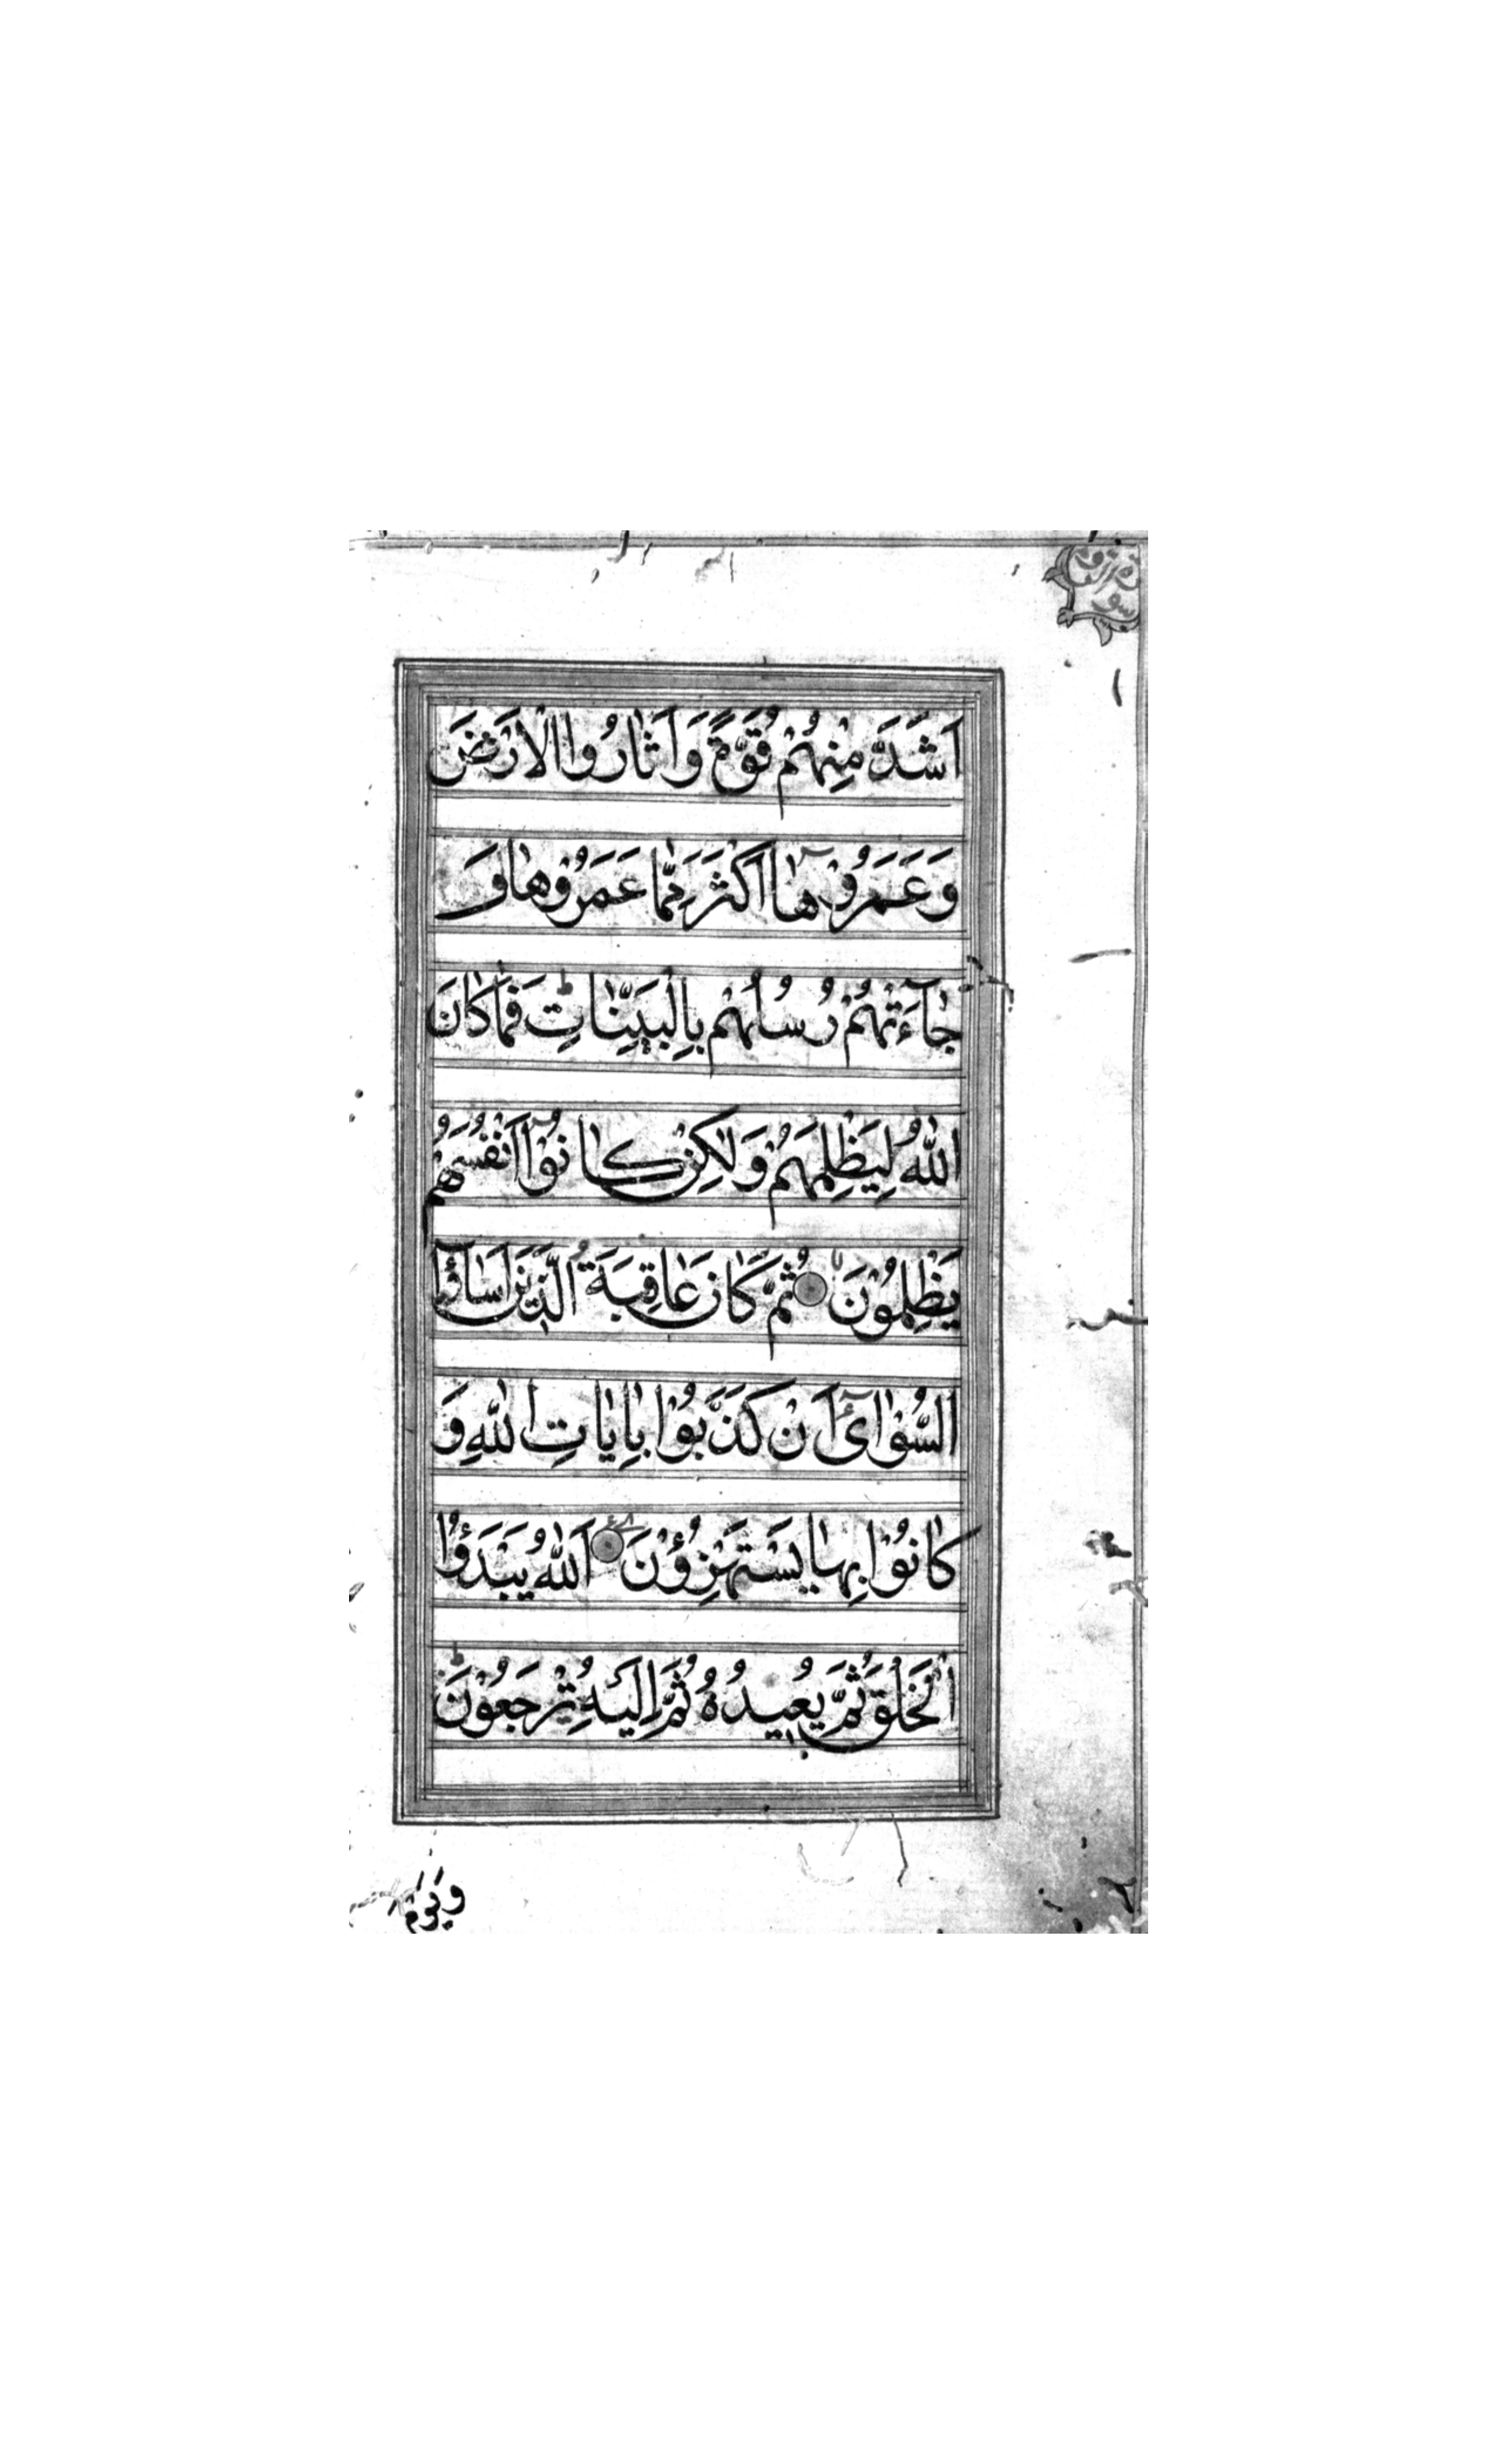 اَشَدَّ مِنْهُمْ قُوَّةً وَاَثَارُوا الْاَرْضَ
وَعَمَرُوْهَا اَكْثَرَ مِمَّا عَمَرُوْهَا وَ
جَآءَتْهُمْ رُسُلُهُمْ بِالْبَيِّنَاتِ ط فَمَا كَانَ
اللهُ لِيَظْلِمَهُمْ وَلٰكِنْ كَانُوْا اَنْفُسَهُمْ
يَظْلِمُوْنَ ثُمَّ كَانَ عَاقِبَةُ الَّذِيْنَ اَسَاؤُا
السُّوْاٰىٓ اَنْ كَذَّبُوْا بِاٰيَاتِ اللهِ وَ
كَانُوْا بِهَا يَسْتَهْزِؤُنَ اَللهُ يَبْدَؤُا
الْخَلْقَ ثُمَّ يُعِيْدُهُ ثُمَّ اِلَيْهِ تُرْجَعُوْنَ ط
وَيَوْمَ